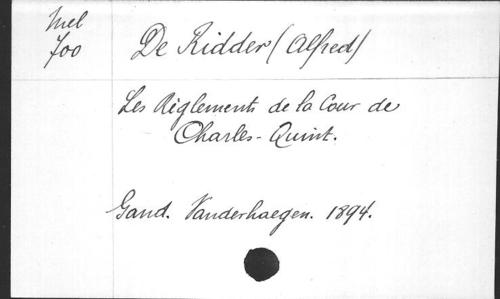 Mel
700
De Ridder (Alfred)
Les Règlements de la Cour de
Charles-Quint.
Gand. Vanderhaegen. 1894.